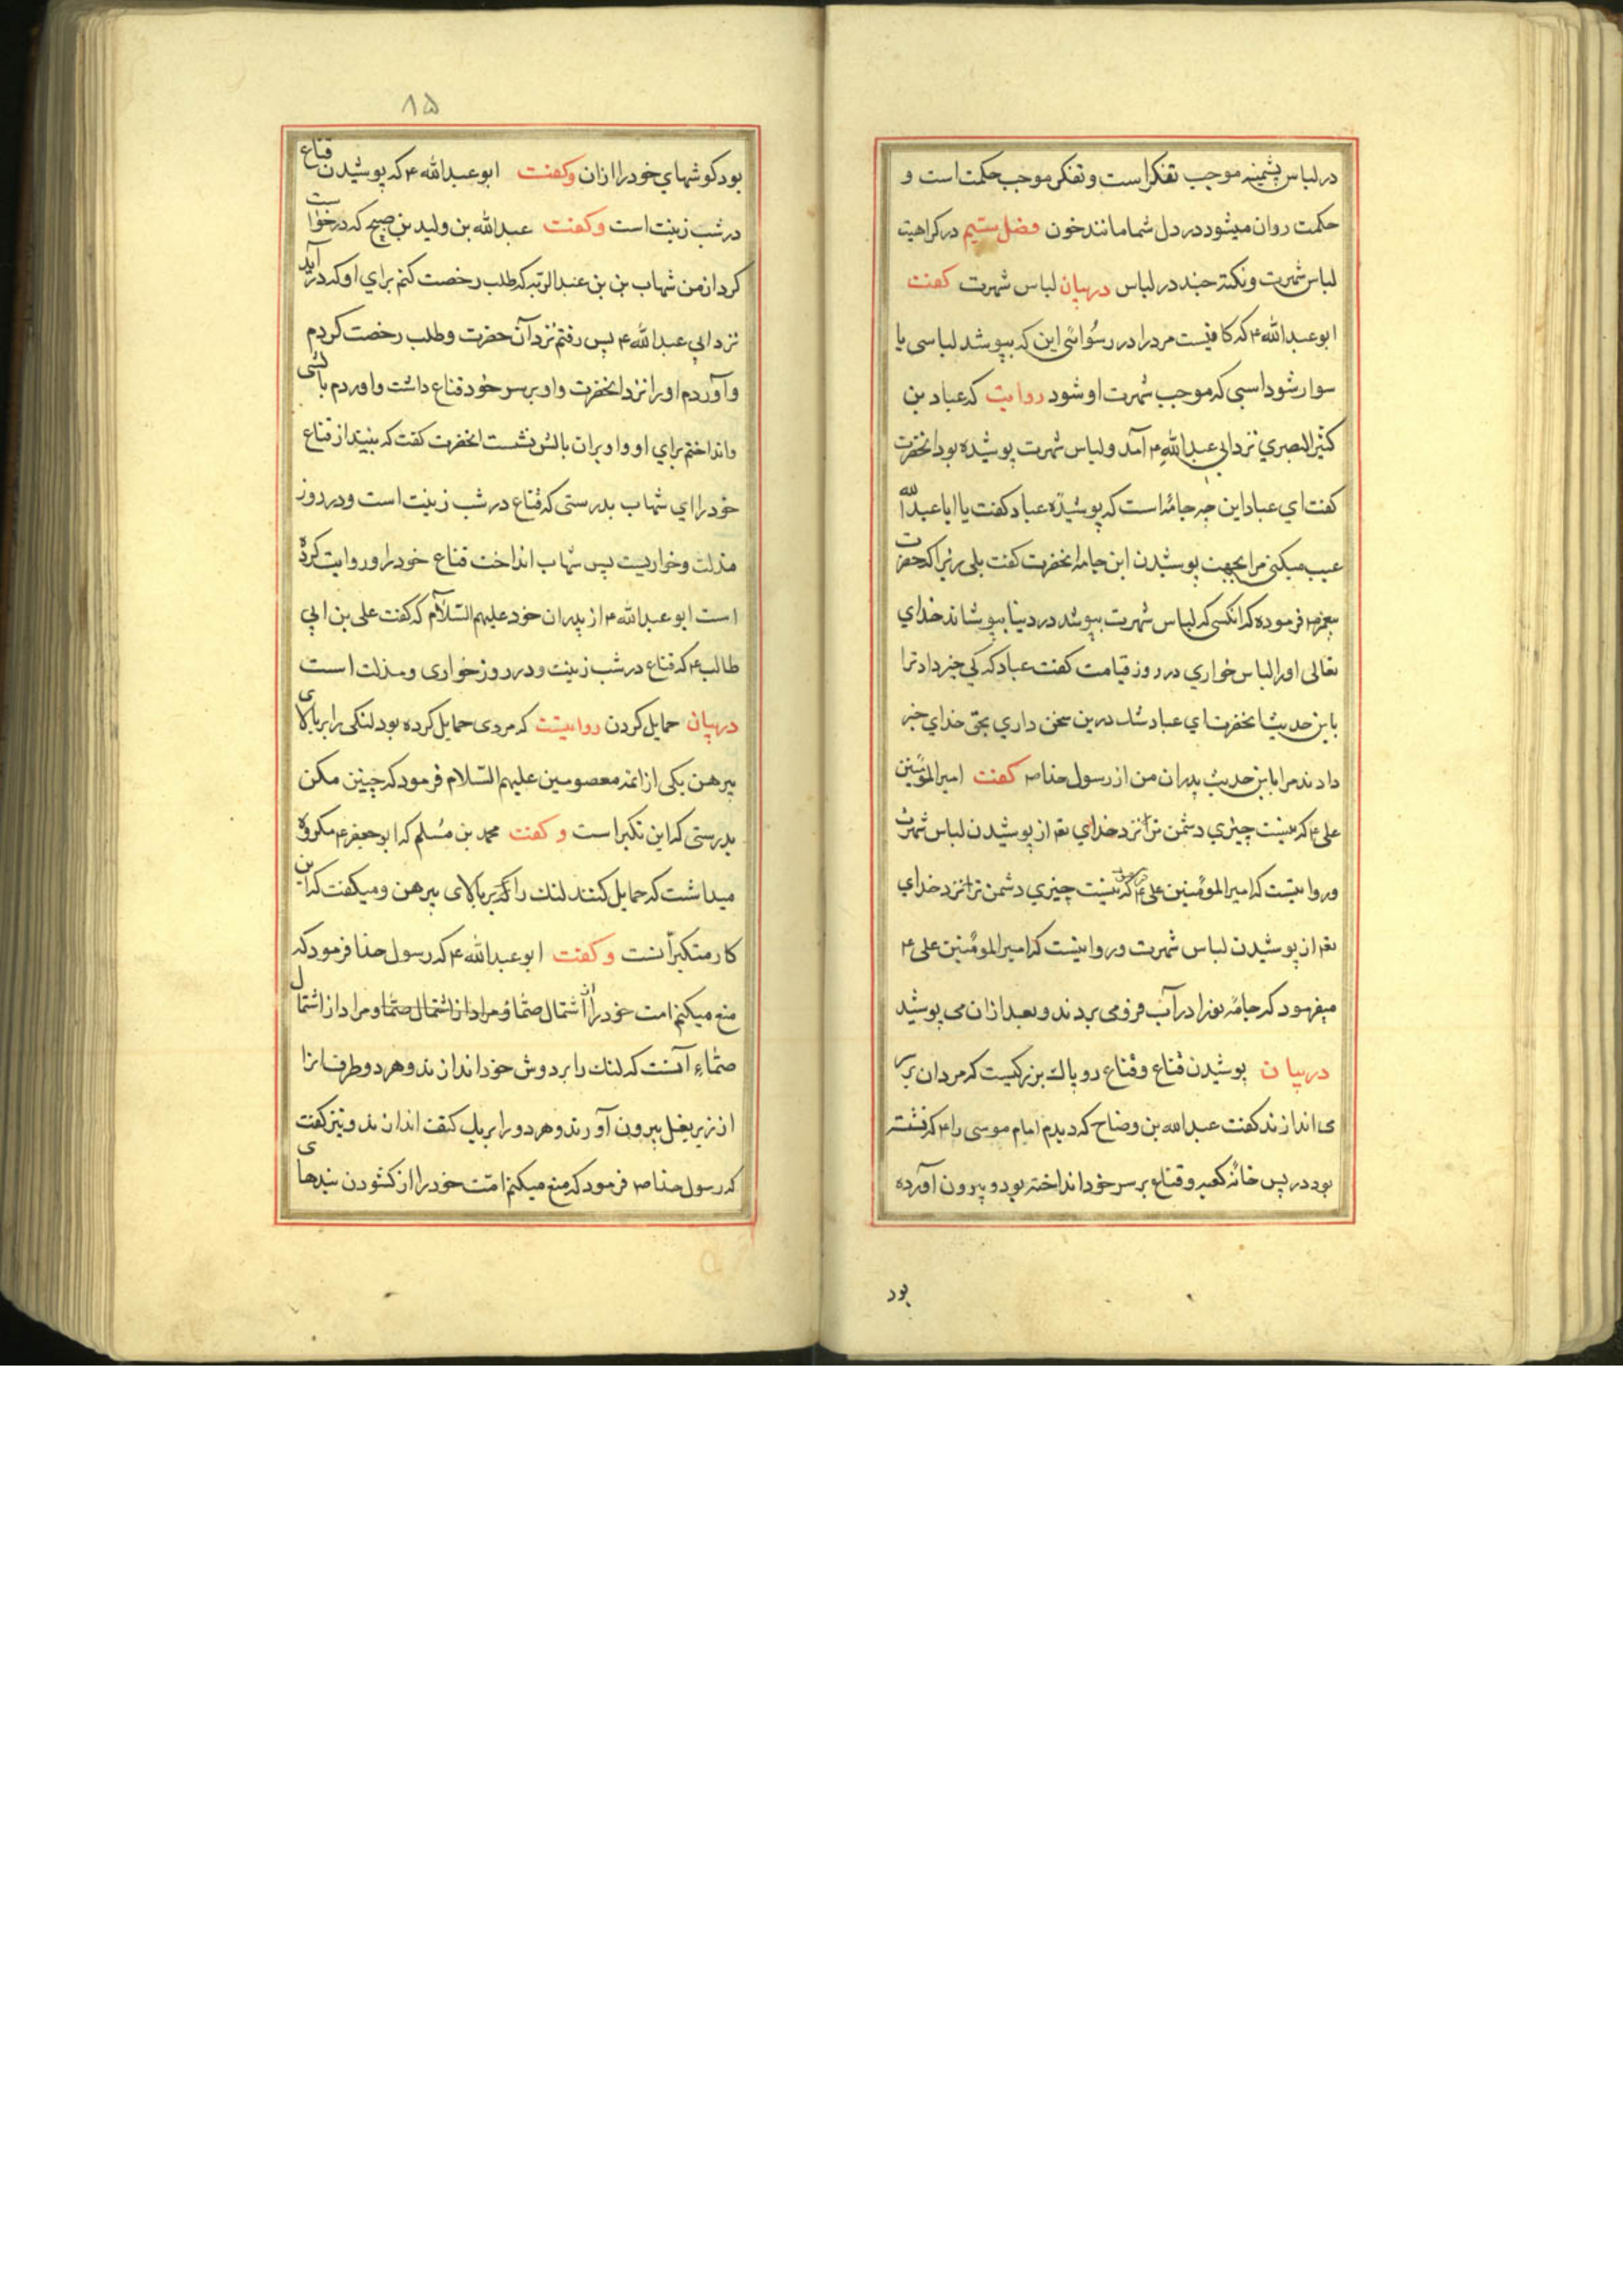 در لباس پشمینه موجب تفکر است و تفکر موجب حکمت است و
حکمت روان میشود در دل شما مانند خون فصل ششم در کراهیت
لباس شهرت و نکتۀ چند در لباس در بیان لباس شهرت کفت
ابو عبدالله ع که کافیست مرد را در رسوائی این که بپوشد لباسی یا
سوار شود اسبی که موجب شهرت او شود روایت که عباد بن
کثیر البصری نزد ابی عبدالله ع آمد و لباس شهرت پوشیده بود انحضرت
کفت ای عباد این چه جامۀ است که پوشیدۀ عباد کفت یا ابا عبدالله
عیب میکنی مرا بجهت پوشیدن این جامه انحضرت کفت بلی زیرا که حضرت
پیغمبر ص فرموده که انکسی که لباس شهرت بپوشد در دینا بپوشاند خدای
تعالی او را لباس خواری در روز قیامت کفت عباد که کی خبر داد ترا
باین حدیث انحضرت ای عباد شک درین سخن داری بحق خدای خبر
دادند مرا باین حدیث پدران من از رسول خدا ص کفت امیر المؤمنین
علی ع که نیست چیزی دشمن تر نزد خدای تع از پوشیدن لباس شهرت
و روایتست که امیر المومنین علی ع که نیست چیزی دشمن تر نزد خدای
تع از پوشیدن لباس شهرت و روایتست که امیر المومنین علی ع
میفرمود که جامۀ نو را در آب فرو می بردند و بعد از ان می پوشید
در بیان پوشیدن قناع و قناع رو پاک بزرکیست که مردان بر سر
می اندازند کفت عبدالله بن وضاح که دیدم امام موسی را ع که نشسته
بود در پس خانۀ کعبه و قناع بر سر خود انداخته بود و بیرون آورده
بود
۸۵
بود کوشهای خود را از ان و کفت ابو عبدالله ع که پوشیدن قناع
در شب زینت است و کفت عبدالله بن ولید بن صبیح که درخواست
کرد از من شهاب بن بن عبد الربه که طلب رخصت کنم برای او که در آید
نزد ابی عبدالله ع پس رفتم نزد آن حضرت و طلب رخصت کردم
و آوردم او را نزد انحضرت و او بر سر خود قناع داشت و اوردم بالشی
و انداختم برای او و او بر ان بالش نشست انحضرت کفت که بینداز قناع
خود را ای شهاب بدرستی که قناع در شب زینت است و در روز
مذلت و خواریست پس شهاب انداخت قناع خود را و روایت کرده
است ابو عبدالله ع از پدران خود علیهم السّلام که کفت علی بن ابی
طالب ع که قناع در شب زینت و در روز خواری و مذلت است
در بیان حمایل کردن روایتست که مردی حمایل کرده بود لنکی را بر بالای
پیرهن یکی از ائمه معصومین علیهم السّلام فرمود که چنین مکن
بدرستی که این تکبر است و کفت محمد بن مسلم که ابو جعفر ع مکروه
میداشت که حمایل کنند لنک را که بر بالای پیرهن و میکفت که این
کار متکبرانست و کفت ابو عبدالله ع که رسول خدا فرمود که
منع میکنم امت خود را از اشتمال صمّاء و مراد از اشتمال صمّا و مراد از اشتمال
صمّاء آنست که لنک را بر دوش خود اندازند و هر دو طرف انرا
از زیر بغل بیرون آورند و هر دو را بر یک کتف اندازند و نیز کفت
که رسول خدا ص فرمود که منع میکنم امّت خود را از کشودن بندهای